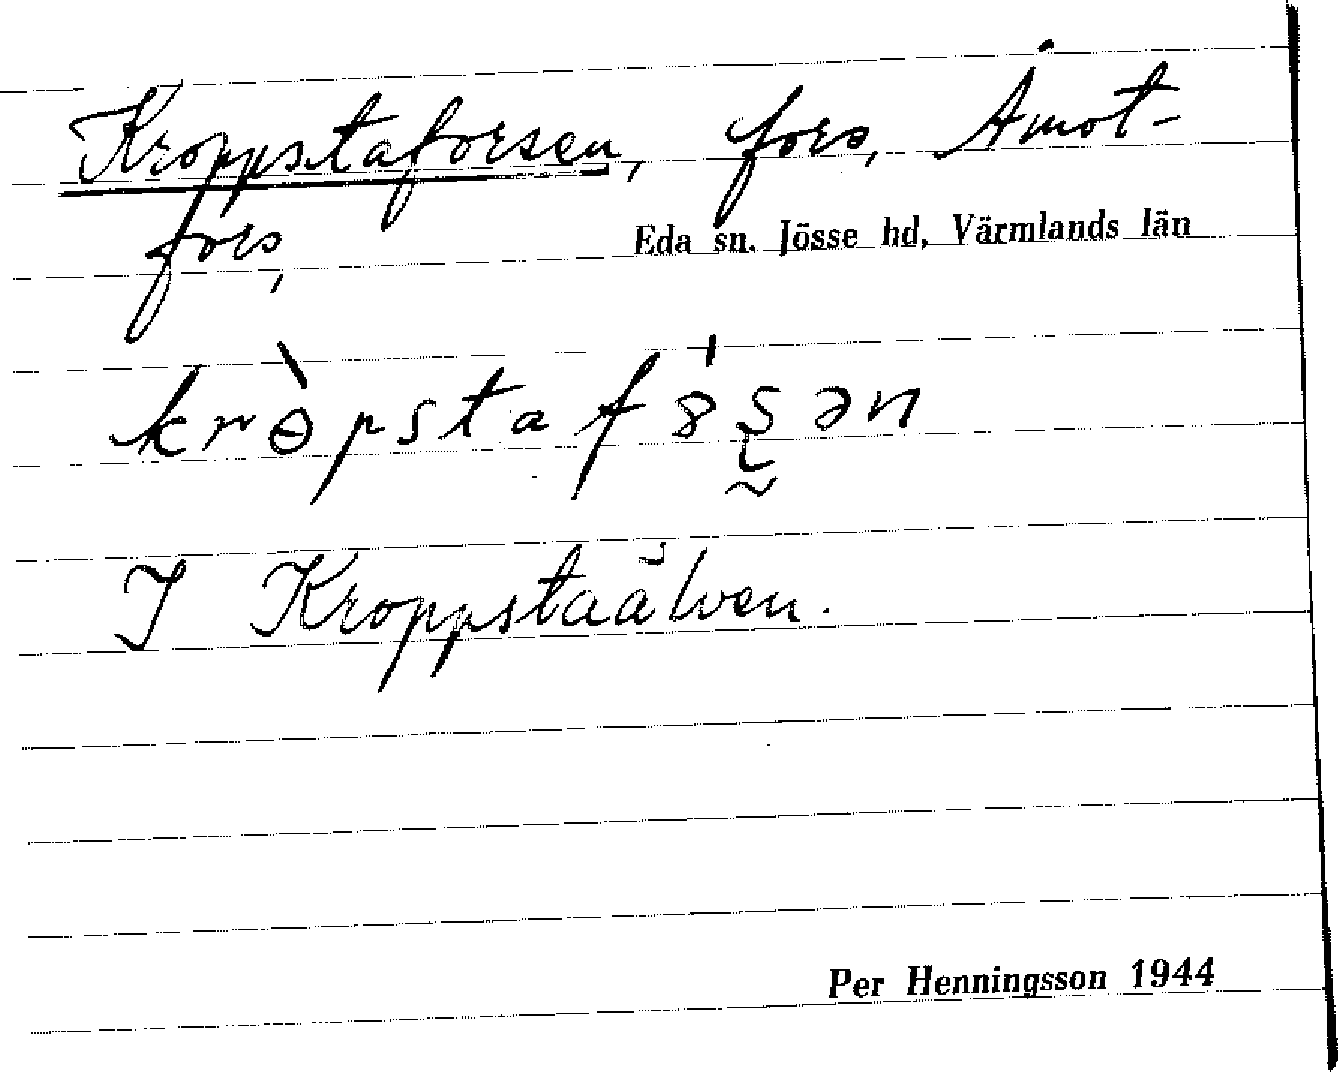 Kroppstaforsen, fors, Åmot-
fors,
Eda sn. Jösse hd, Värmlands län
krɵ̀pstafȣ́ʂən
I Kroppstaälven.
Per Henningsson 1944